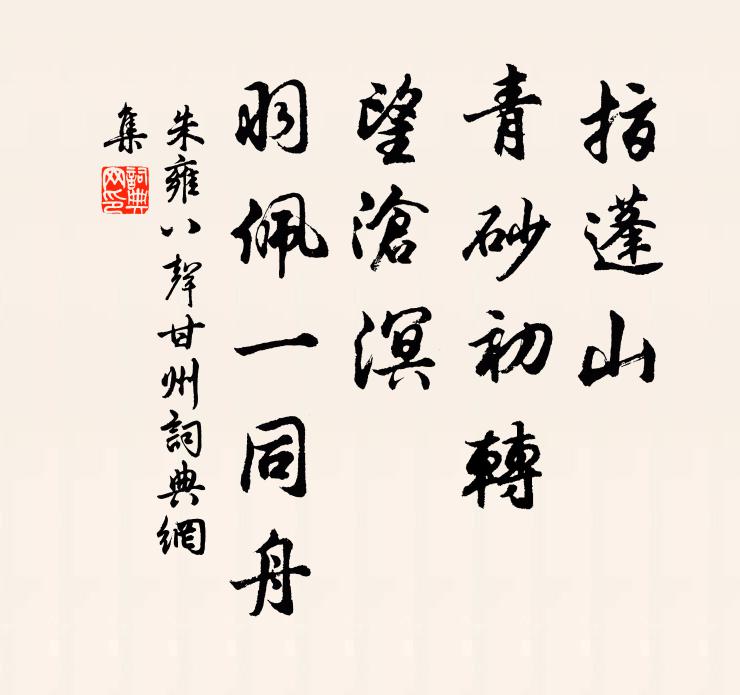 指蓬山
青砂初轉
望滄溟
羽佩一同舟
朱雍八聲甘州詞典網
集
詞典
网印